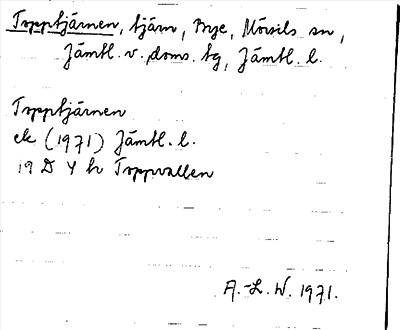 Topptjärnen, tjärn, Brye, Mörsils sn,
Jämtl. v. doms. tg, Jämtl. l.
Topptjärnen
ek (1971) Jämtl. l.
19 D 4 h Toppvallen
A.-L. W. 1971.